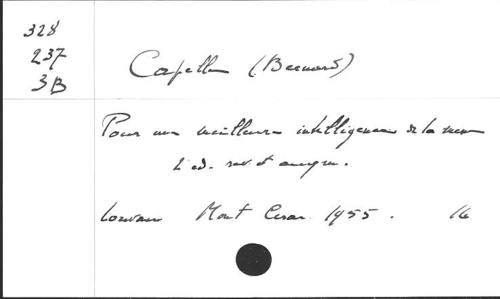 328
237
3B
Capelle (Bernard)
Pour une meilleure intelligence de la messe
2 ed. rev et augm.
Louvain Mont Cesar 1955. 16